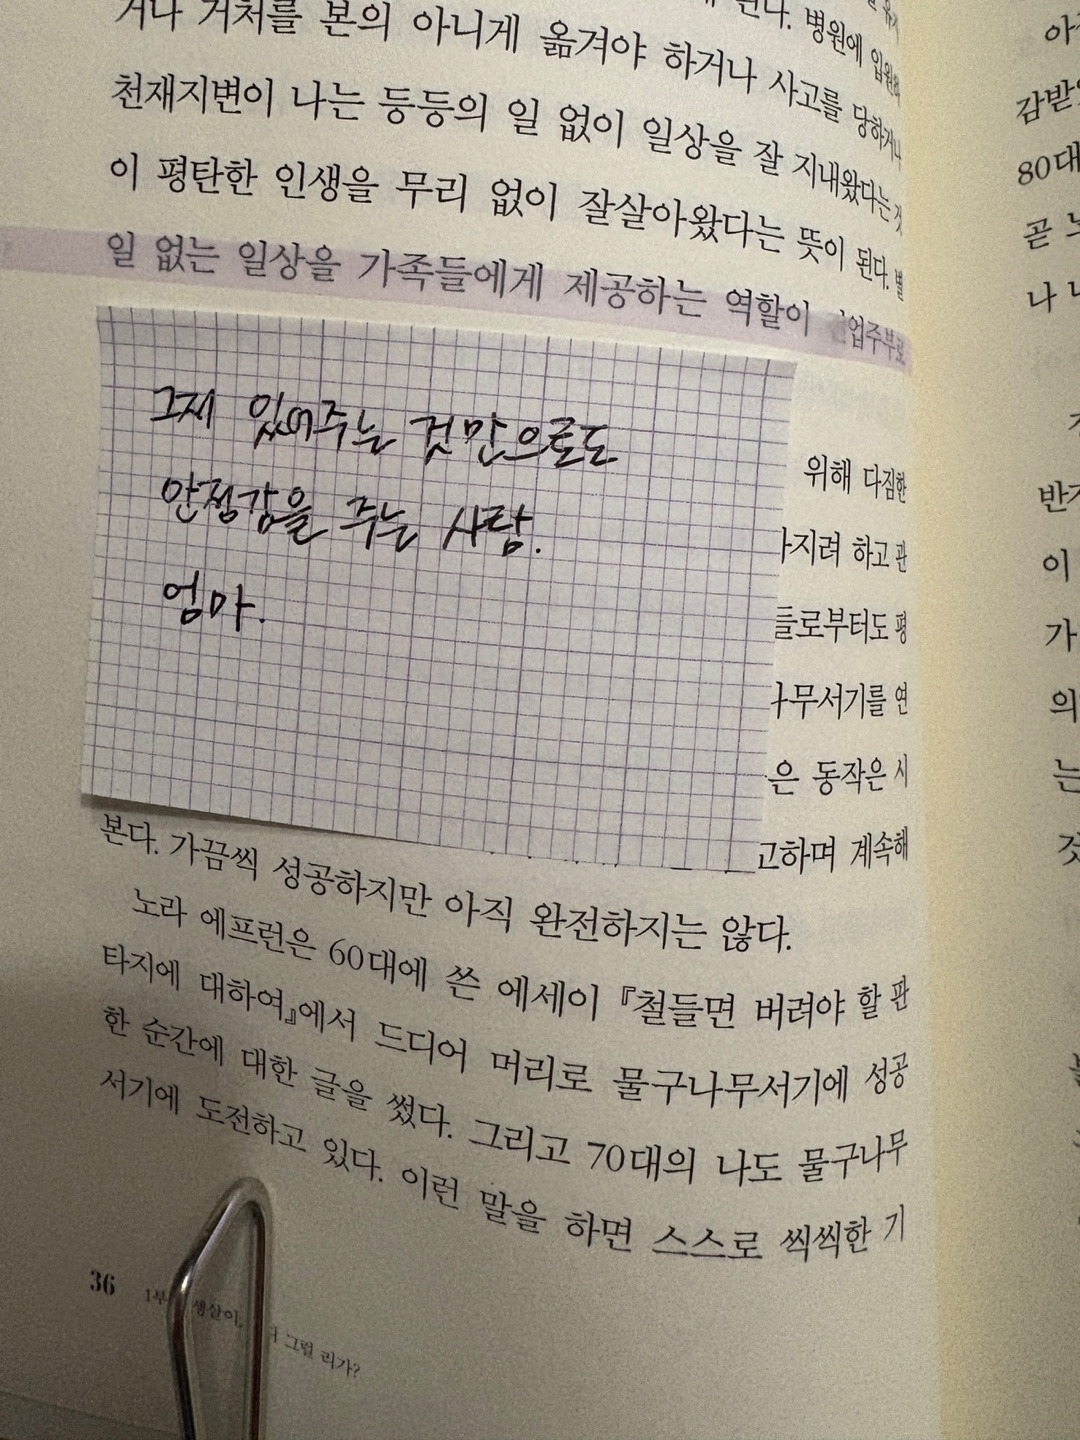 된다. 병원에 입원하
거나 거처를 본의 아니게 옮겨야 하거나 사고를 당하거나
천재지변이 나는 등등의 일 없이 일상을 잘 지내왔다는 것
이 평탄한 인생을 무리 없이 잘살아왔다는 뜻이 된다. 별
일 없는 일상을 가족들에게 제공하는 역할이 업주부로
그저 있어주는 것만으로도
안정감을 주는 사람.
엄마.
위해 다짐한
지려 하고 관
들로부터도 평
나무서기를 연
은 동작은 시
고하며 계속해
본다. 가끔씩 성공하지만 아직 완전하지는 않다.
노라 에프런은 60대에 쓴 에세이 『철들면 버려야 할 판
타지에 대하여』에서 드디어 머리로 물구나무서기에 성공
한 순간에 대한 글을 썼다. 그리고 70대의 나도 물구나무
서기에 도전하고 있다. 이런 말을 하면 스스로 씩씩한 기
36 1부 생살이, 그럴 리가?
아
감받
80대
곧
나
반
이
가
의
는
것